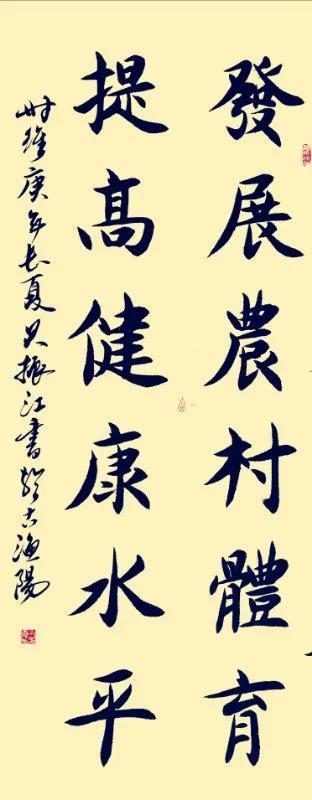 發展農村體育
提高健康水平
時維庚年長夏振江書於古漁陽